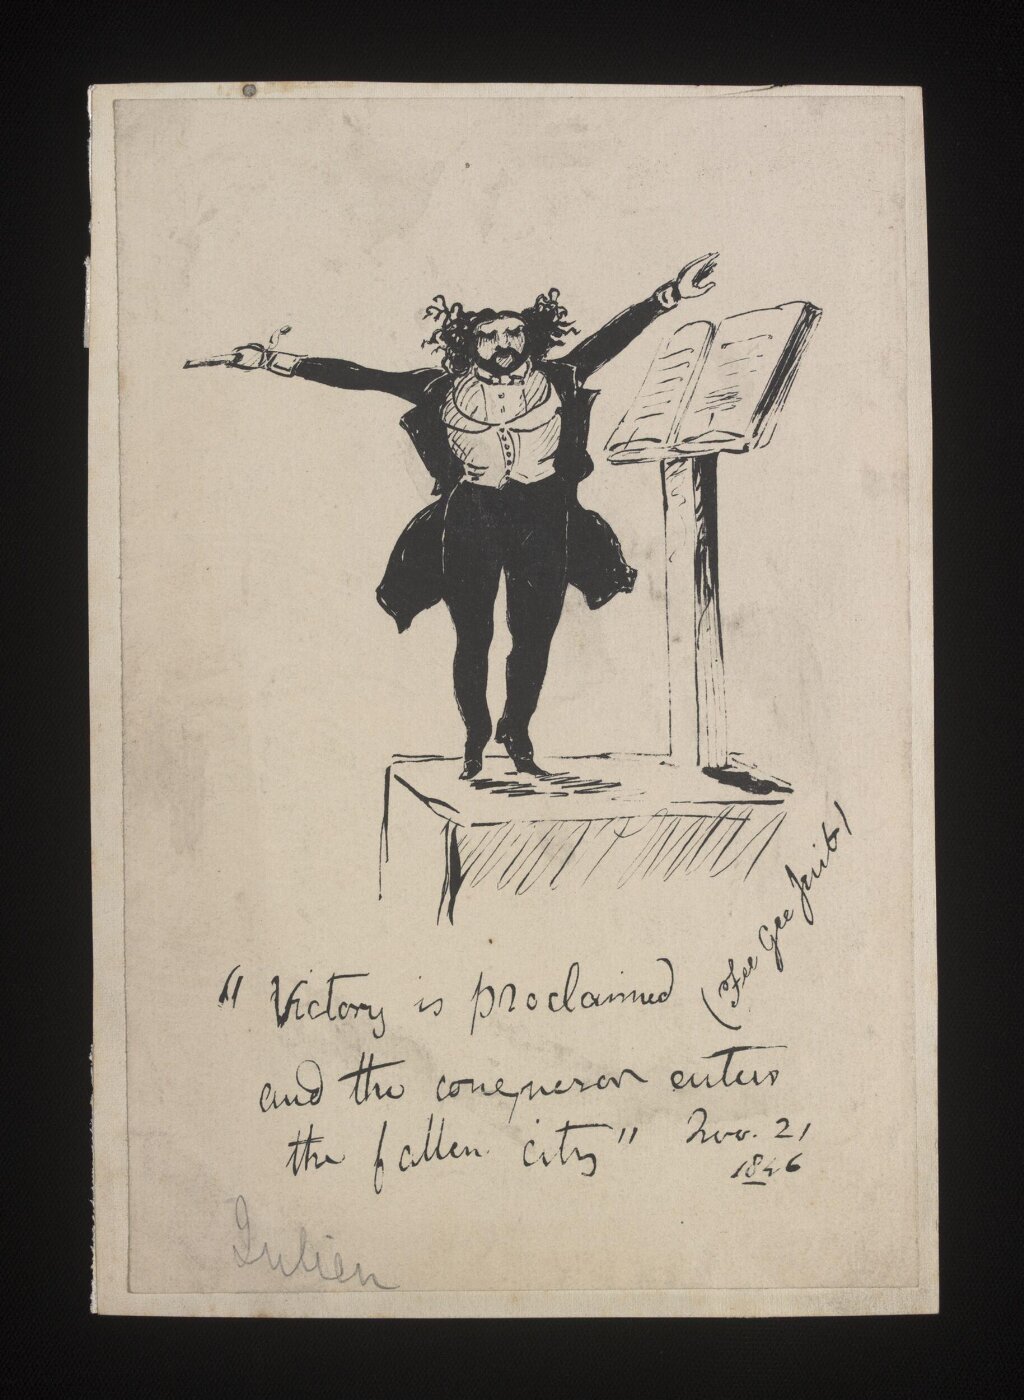 "Victory is proclaimed
(Fee Gee
and the conqueror enters
the fallen city" Nov. 21
1846
Julien